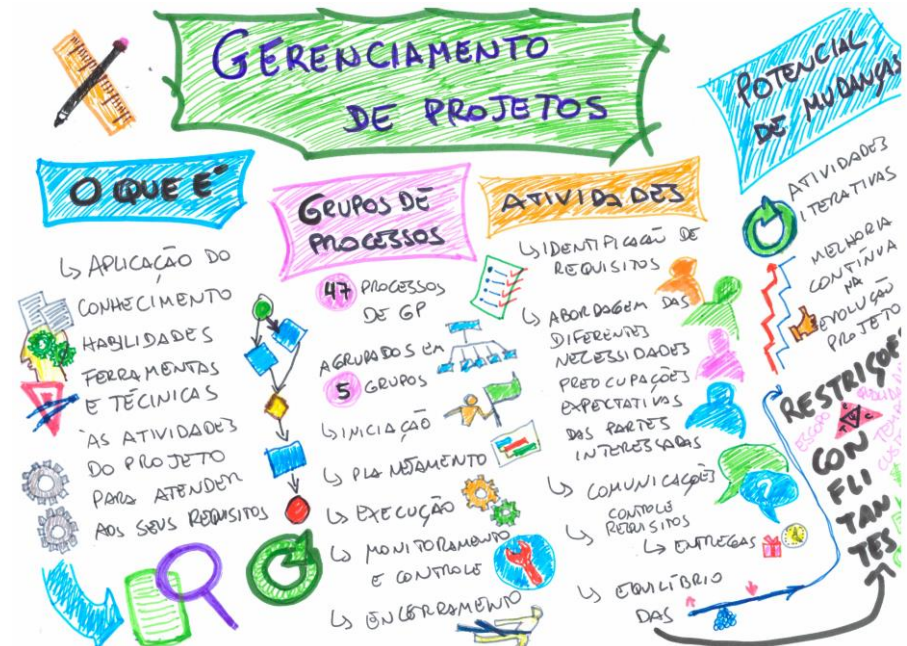 GERENCIAMENTO
DE PROJETOS
O QUE É
↳ APLICAÇÃO DO
CONHECIMENTO
HABILIDADES
FERRAMENTAS
E TÉCINICAS
ÀS ATIVIDADES
DO PROJETO
PARA ATENDER
AOS SEUS REQUISITOS
GRUPOS DE
PROCESSOS
47 PROCESSOS
DE GP
AGRUPADOS EM
5 GRUPOS
↳ INICIAÇÃO
↳ PLANEJAMENTO
↳ EXECUÇÃO
↳ MONITORAMENTO
E CONTROLE
↳ ENCERRAMENTO
ATIVIDADES
↳ IDENTIFICAÇÃO DE
REQUISITOS
↳ ABORDAGEM DAS
DIFERENTES
NECESSIDADES
PREOCUPAÇÕES
EXPECTATIVAS
DAS PARTES
INTERESSADAS
↳ COMUNICAÇÕES
?
↳ CONTROLE
REQUISITOS
↳ ENTREGAS
↳ EQUILÍBRIO
DAS
RESTRIÇÕE
ESCOPO
CON
FLI
TAN
TES
POTENCIAL
DE MUDANÇAS
ATIVIDADES
ITERATIVAS
MELHORIA
CONTÍNUA
NA
EVOLUÇÃO
PROJETO